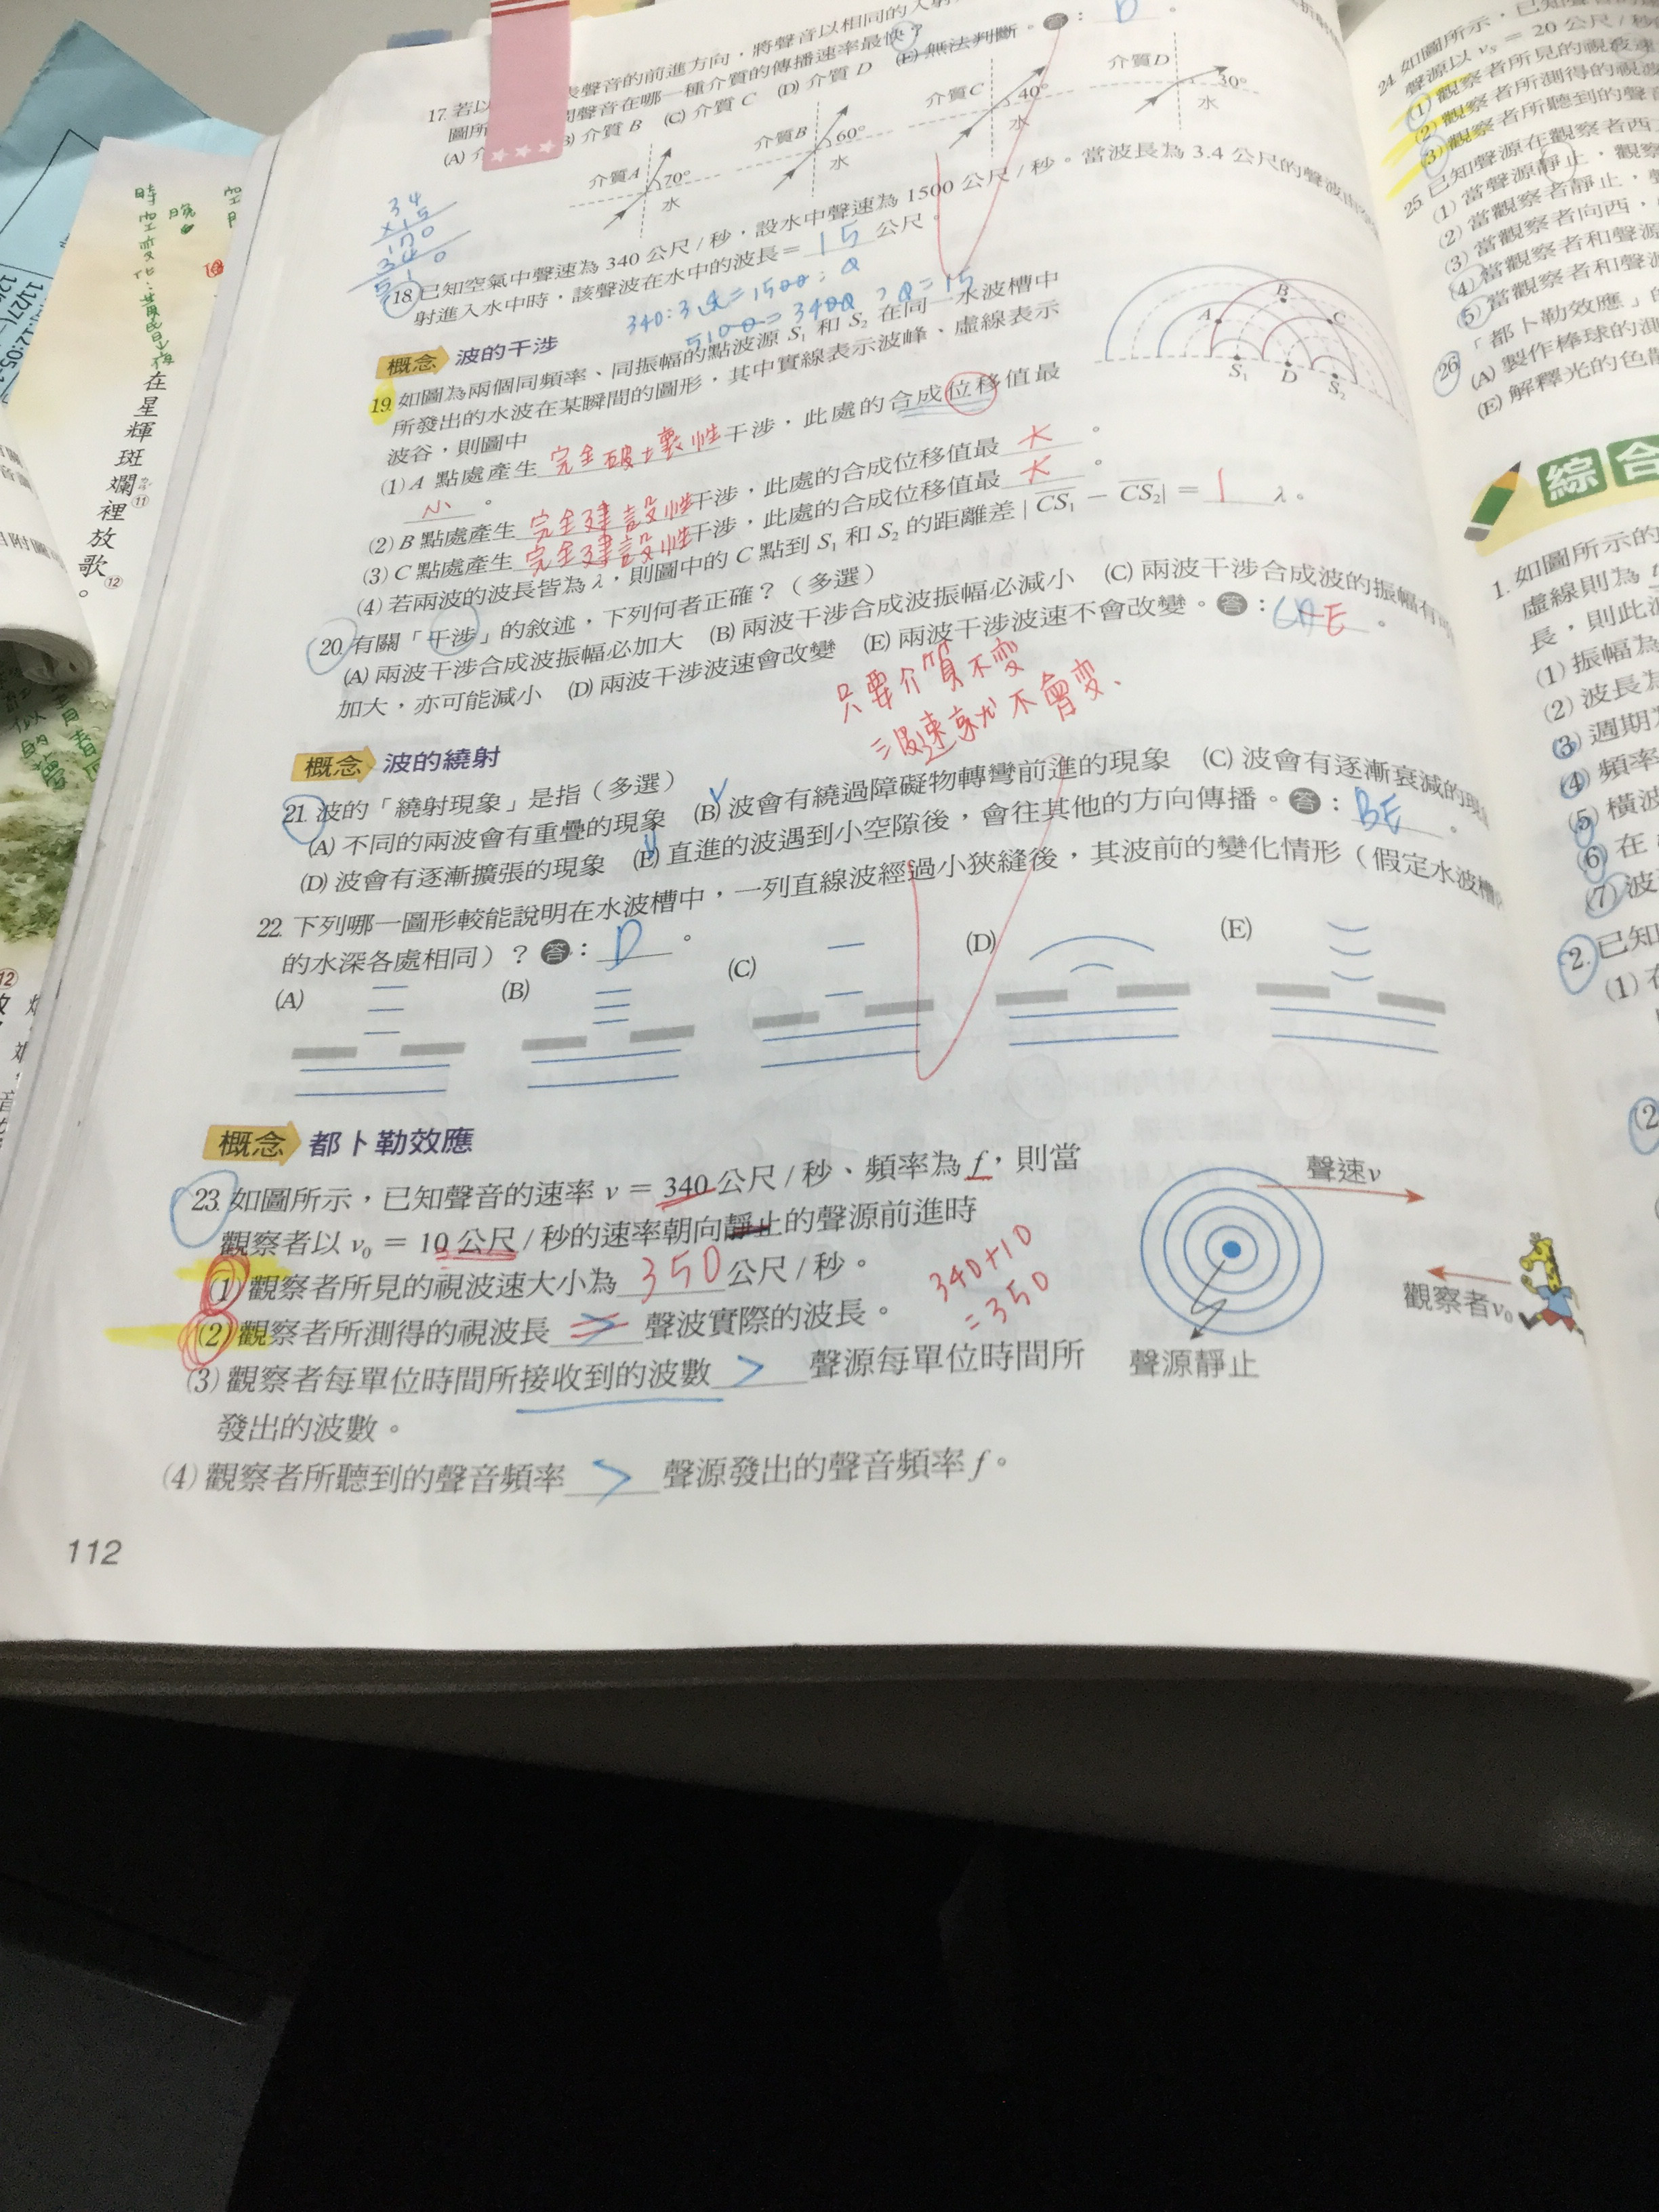 17. 若以
表聲音的前進方向，將聲音以相同的入射
聲音在哪一種介質的傳播速率最快？
(A) 介
介質 B (C) 介質 C (D) 介質 D (E) 無法判斷。答：D。
介質A 70° 水
介質B 60° 水
介質C 40° 水
介質D 30° 水
34
×15
170
340
510
18. 已知空氣中聲速為 340 公尺/秒，設水中聲速為 1500 公尺/秒。當波長為 3.4 公尺的聲波由空氣
射進入水中時，該聲波在水中的波長＝15公尺。
5100=340a，a=15
概念 波的干涉
19. 如圖為兩個同頻率、同振幅的點波源 S₁ 和 S₂ 在同一水波槽中
所發出的水波在某瞬間的圖形，其中實線表示波峰、虛線表示
波谷，則圖中
(1) A 點處產生完全破壞性干涉，此處的合成位移值最
小。
(2) B 點處產生完全建設性干涉，此處的合成位移值最大。
(3) C 點處產生完全建設性干涉，此處的合成位移值最大。
(4) 若兩波的波長皆為 λ，則圖中的 C 點到 S₁ 和 S₂ 的距離差 | CS₁ － CS₂| ＝1λ。
A B C
S₁ D S₂
20. 有關「干涉」的敘述，下列何者正確？（多選）
(A) 兩波干涉合成波振幅必加大 (B) 兩波干涉合成波振幅必減小 (C) 兩波干涉合成波的振幅有
加大，亦可能減小 (D) 兩波干涉波速會改變 (E) 兩波干涉波速不會改變。答：E。
只要介質不變
波速就不會變、
概念 波的繞射
21. 波的「繞射現象」是指（多選）
(A) 不同的兩波會有重疊的現象 (B) 波會有繞過障礙物轉彎前進的現象 (C) 波會有逐漸衰減的現
(D) 波會有逐漸擴張的現象 (E) 直進的波遇到小空隙後，會往其他的方向傳播。答：BE。
22. 下列哪一圖形較能說明在水波槽中，一列直線波經過小狹縫後，其波前的變化情形（假定水波槽
的水深各處相同）？答：D。
(A) (B) (C) (D) (E)
概念 都卜勒效應
23. 如圖所示，已知聲音的速率 v ＝ 340 公尺/秒、頻率為 f，則當
觀察者以 v₀ ＝ 10 公尺/秒的速率朝向靜止的聲源前進時
(1) 觀察者所見的視波速大小為350公尺/秒。
340+10
=350
(2) 觀察者所測得的視波長=聲波實際的波長。
(3) 觀察者每單位時間所接收到的波數>聲源每單位時間所
發出的波數。
(4) 觀察者所聽到的聲音頻率>聲源發出的聲音頻率 f。
聲速v
觀察者v₀
聲源靜止
112
在星輝斑斕裡放歌。
⑪
⑫
24. 如圖所示，已知聲
聲源以 vₛ ＝ 20 公尺/秒
(1) 觀察者所見的視波速
(2) 觀察者所測得的視波
(3) 觀察者所聽到的聲音
25. 已知聲源在觀察者西
(1) 當聲源靜止，觀察
(2) 當觀察者靜止，聲
(3) 當觀察者向西，
(4) 當觀察者和聲源
(5) 當觀察者和聲源
26. 「都卜勒效應」的
(A) 製作棒球的測
(E) 解釋光的色散
綜合
1. 如圖所示的
虛線則為
長，則此波
(1) 振幅為
(2) 波長為
(3) 週期
(4) 頻率
(5) 橫波
(6) 在
(7) 波
2. 已知
(1) 在